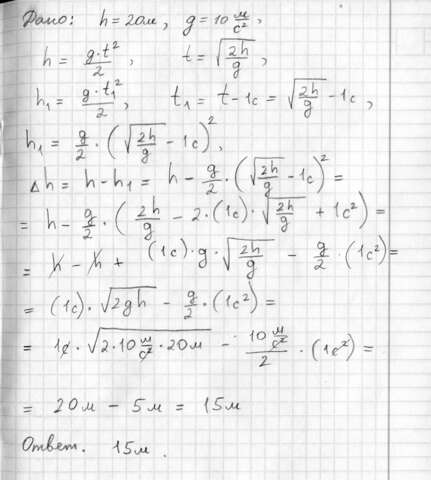 Дано: h = 20м, g = 10 м/с²,
h = g·t²/2, t = √(2h/g),
h₁ = g·t₁²/2, t₁ = t - 1с = √(2h/g) - 1с,
h₁ = g/2 · (√(2h/g) - 1с)²,
Δh = h - h₁ = h - g/2 · (√(2h/g) - 1с)² =
= h - g/2 · (2h/g - 2·(1с)·√(2h/g) + 1с²) =
= h - h + (1с)·g·√(2h/g) - g/2 · (1с²) =
= (1с)·√(2gh) - g/2 · (1с²) =
= 1с · √(2·10 м/с² · 20м) - (10 м/с²)/2 · (1с²) =
= 20м - 5м = 15м
Ответ. 15м.